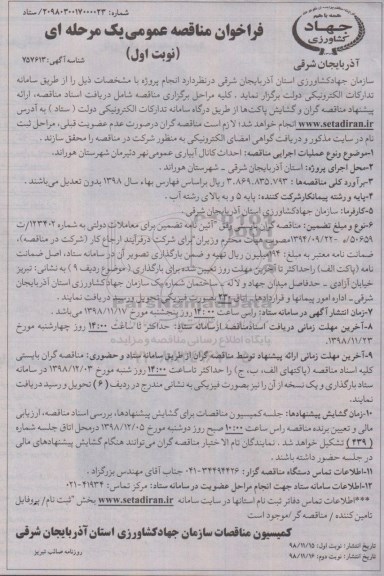 شماره: ۲۰۹۸۰۳۰۰۱۷۰۰۰۰۲۳/ ستاد
همه با هم
جهاد
کشاورزی
آذربایجان شرقی
فراخوان مناقصه عمومی یک مرحله ای
(نوبت اول)
شناسه آگهی: ۷۵۷۶۱۳
سازمان جهادکشاورزی استان آذربایجان شرقی درنظردارد انجام پروژه با مشخصات ذیل را از طریق سامانه
تدارکات الکترونیکی دولت برگزار نماید. کلیه مراحل برگزاری مناقصه شامل دریافت اسناد مناقصه، ارائه
پیشنهاد مناقصه گران و گشایش پاکت‌ها از طریق درگاه سامانه تدارکات الکترونیکی دولت ( ستاد ) به آدرس
www.setadiran.ir انجام خواهد شد؛ لازم است مناقصه گران درصورت عدم عضویت قبلی، مراحل ثبت
نام در سایت مذکور و دریافت گواهی امضای الکترونیکی به منظور شرکت در مناقصه را محقق سازند.
۱-موضوع ونوع عملیات اجرایی مناقصه: احداث کانال آبیاری عمومی نهر دئیرمان شهرستان هوراند.
۲-محل اجرای پروژه: استان آذربایجان شرقی - شهرستان هوراند.
۳-برآورد کلی مناقصه‌ها : ۳،۸۶۹،۸۳۵،۷۹۳ ریال براساس فهارس بهاء سال ۱۳۹۸ بدون تعدیل می‌باشند.
۴-پایه و رشته پیمانکارشرکت کننده: پایه ۵ و به بالای رشته آب.
۵-کارفرما: سازمان جهادکشاورزی استان آذربایجان شرقی.
۶-نوع و مبلغ تضمین: مناقصه گران آئین نامه تضمین برای معاملات دولتی به شماره ۱۲۳۴۰۲/ت
۵۰۶۵۹/ه - ۱۳۹۴/۰۹/۲۲ مصوب هیئت محترم وزیران برای شرکت درفرآیند ارجاع کار (شرکت در مناقصه)،
ضمانت نامه معتبر به مبلغ: ۱۹۴ میلیون ریال تهیه و ضمن بارگذاری تصویر آن در سامانه ستاد، اصل ضمانت
نامه (پاکت الف) راحداکثر تا آخرین مهلت روز تعیین شده برای بارگذاری ( موضوع ردیف ۹ ) به نشانی: تبریز
خیابان آزادی - حدفاصل میدان جهاد و لاله - ساختمان شماره یک سازمان جهادکشاورزی استان آذربایجان
شرقی - اداره امور پیمانها و قراردادها دریافت نمایند.
۷-زمان انتشار آگهی در سامانه ستاد: راس ساعت ۱۴:۰۰ روز پنجشنبه مورخ ۱۳۹۸/۱۱/۱۷ می باشد.
۸-آخرین مهلت زمانی دریافت اسنادمناقصه ازسامانه ستاد: حداکثر تا ساعت ۱۴:۰۰ روز چهارشنبه مورخ
۱۳۹۸/۱۱/۲۳.
۹-آخرین مهلت زمانی ارائه پیشنهاد توسط مناقصه گران از طریق سامانه ستاد و حضوری: مناقصه گران بایستی
کلیه اسناد مناقصه (پاکتهای الف، ب، ج) را حداکثر تاساعت ۱۴:۰۰ روز شنبه مورخ ۱۳۹۸/۱۲/۰۳ در سامانه
ستاد بارگذاری و یک نسخه از آن را نیز بصورت فیزیکی به نشانی مندرج در ردیف (۶) تحویل و رسید دریافت
نمایند.
۱۰-زمان گشایش پیشنهادها: جلسه کمیسیون مناقصات برای گشایش پیشنهادها، بررسی اسناد مناقصه، ارزیابی
مالی و تعیین برنده مناقصه راس ساعت ۱۰:۰۰ صبح روز دوشنبه مورخ ۱۳۹۸/۱۲/۰۵ درمحل اتاق جلسه شماره
( ۴۳۹ ) تشکیل خواهد شد . نمایندگان تام الاختیار مناقصه گران می‌توانند هنگام گشایش پیشنهادهای مالی
در جلسه حضور داشته باشند.
۱۱-اطلاعات تماس دستگاه مناقصه گزار: ۳۴۴۹۴۴۲۶-۰۴۱ جناب آقای مهندس بزرگزاد.
۱۲-اطلاعات تماس سامانه ستاد جهت انجام مراحل عضویت در سامانه ستاد: مرکز تماس: ۴۱۹۳۴-۰۲۱
***اطلاعات تماس دفاتر ثبت نام استانها در سایت سامانه www.setadiran.ir بخش "ثبت نام/ پروفایل
تامین کننده / مناقصه گر/موجود است
کمیسیون مناقصات سازمان جهادکشاورزی استان آذربایجان شرقی
تاریخ انتشار: نوبت اول: ۹۸/۱۱/۱۵
تاریخ انتشار: نوبت دوم: ۹۸/۱۱/۱۶
روزنامه صائب تبریز